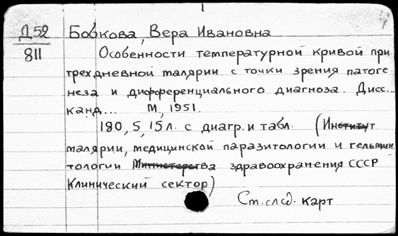 Д 52 Бобкова, Вера Ивановна
811
Особенности температурной кривой при
трехдневной малярии с точки зрения патоге
неза и дифференциального диагноза. Дисс...
канд... М, 1951.
180, 5, 15 л. с диагр. и табл. (Институт
малярии, медицинской паразитологии и гельмин
тологии Министерства здравоохранения СССР
Клинический сектор)
Ст. след. карт